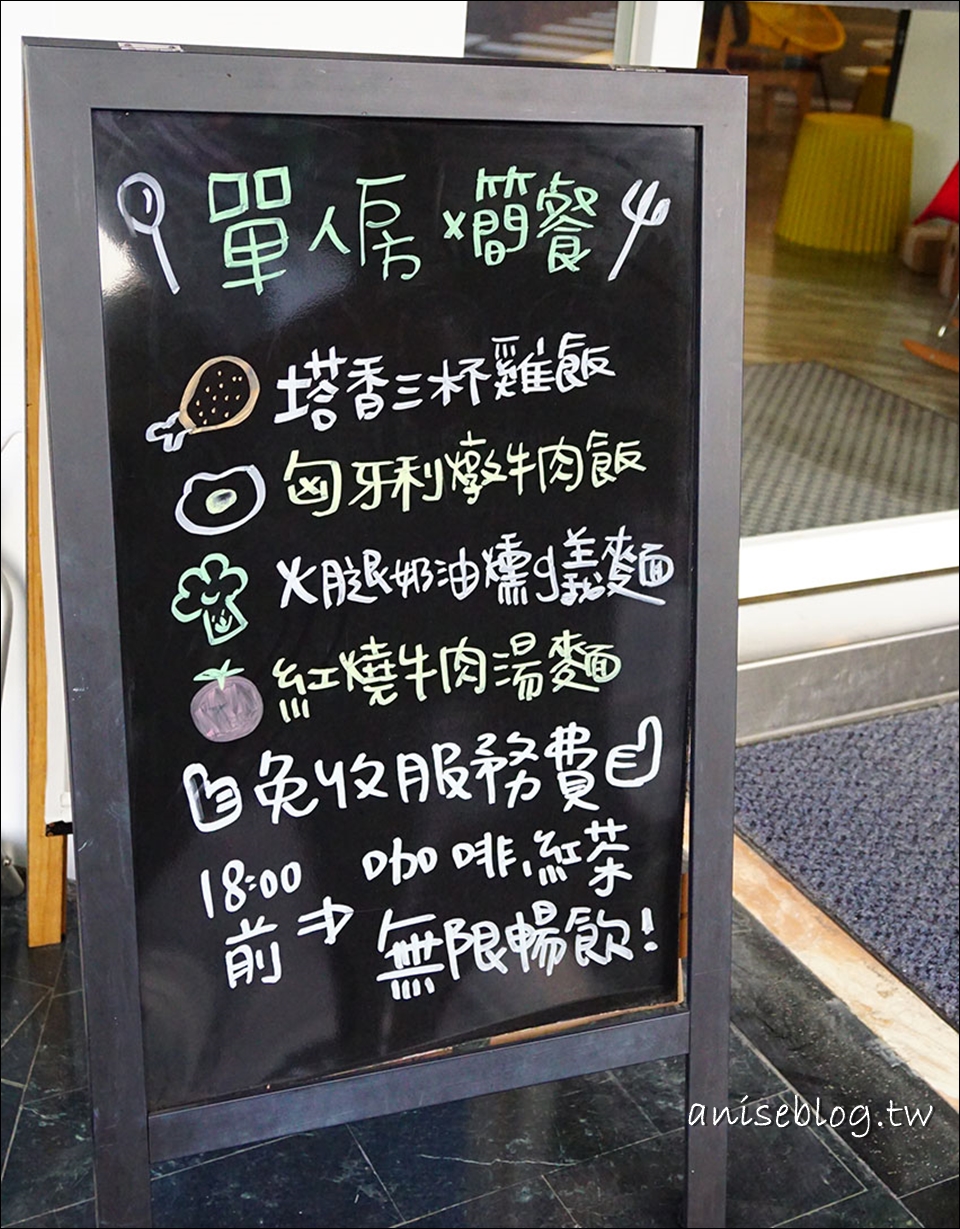 單人房x簡餐
塔香三杯雞飯
匈牙利燉牛肉飯
火腿奶油燻j義麵
紅燒牛肉湯麵
免收服務費
18:00前 → 咖啡、紅茶
無限暢飲!
aniseblog.tw